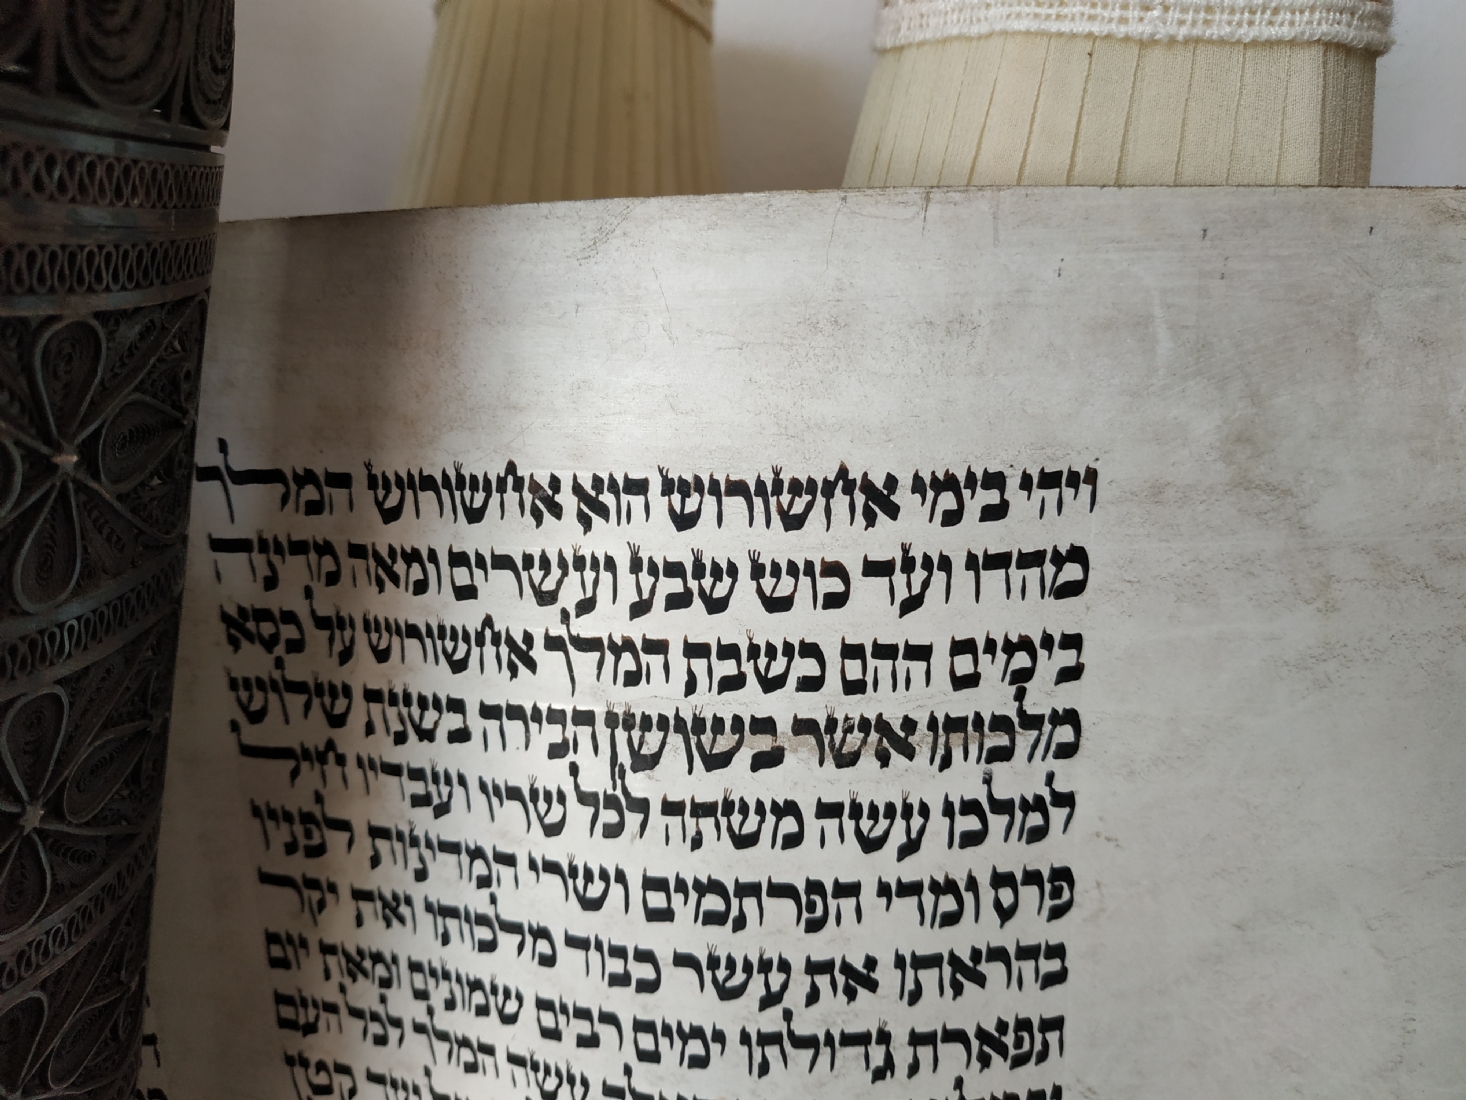 ויהי בימי אחשורוש הוא אחשורוש המלך
מהדו ועד כוש שבע ועשרים ומאה מדינה
בימים ההם כשבת המלך אחשורוש על כסא
מלכותו אשר בשושן הבירה בשנת שלוש
למלכו עשה משתה לכל שריו ועבדיו חיל
פרס ומדי הפרתמים ושרי המדינות לפניו
בהראתו את עשר כבוד מלכותו ואת יקר
תפארת גדולתו ימים רבים שמונים ומאת יום
עשה המלך לכל העם
ועד קטן